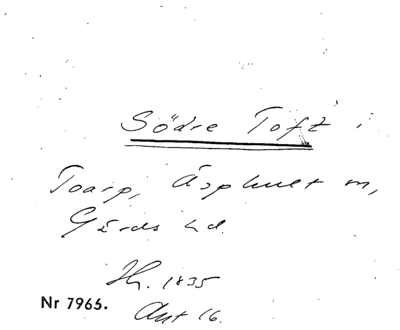 Södre Toft i
Toarp, Äsphult sn,
Gärds hd.
Hr. 1835
Nr 7965.
Akt 16.